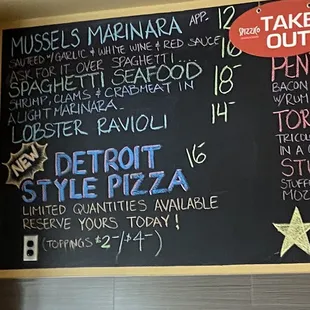 MUSSELS MARINARA APP- 12
SAUTEED W/ GARLIC & WHITE WINE & RED SAUCE
ASK FOR IT OVER SPAGHETTI.... 16
SPAGHETTI SEAFOOD 18-
SHRIMP, CLAMS & CRABMEAT IN
A LIGHT MARINARA. 14-
LOBSTER RAVIOLI
NEW
DETROIT 16-
STYLE PIZZA
LIMITED QUANTITIES AVAILABLE
RESERVE YOURS TODAY!
(TOPPINGS $2-/$4-)
PIZZCO
TAKE
OUT
PEN
BACON
W/RUM
TOR
TRICOL
IN A C
STU
STUFF
MOZ